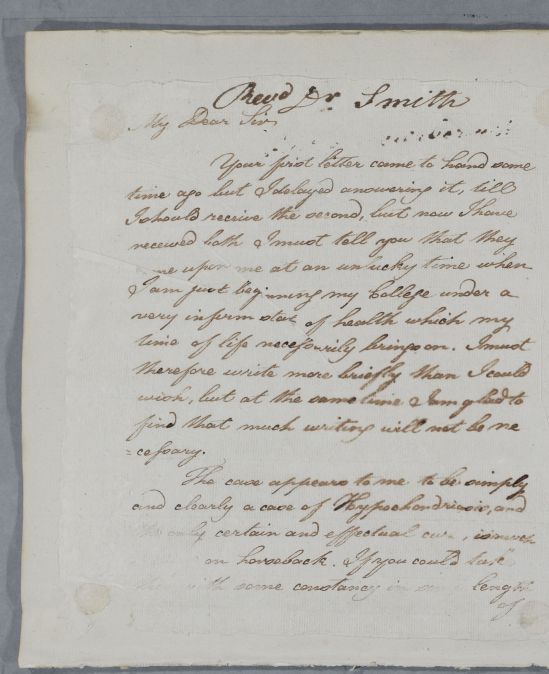 Revd Dr Smith
My Dear Sir
Your first letter came to hand some
time ago but I delayed answering it, till
I should receive the second, but now I have
received both I must tell you that they
upon me at an unlucky time when
I am just beginning my College under a
very infirm state of health which my
time of life necessarily brings on. I must
therefore write more briefly than I could
wish, but at the same time I am glad to
find that much writing will not be ne
=cessary.
The case appears to me to be simply
and clearly a case of Hypochondriasis, and
the only certain and effectual cure, is much
on horseback. If you could take
this with some constancy in length
of